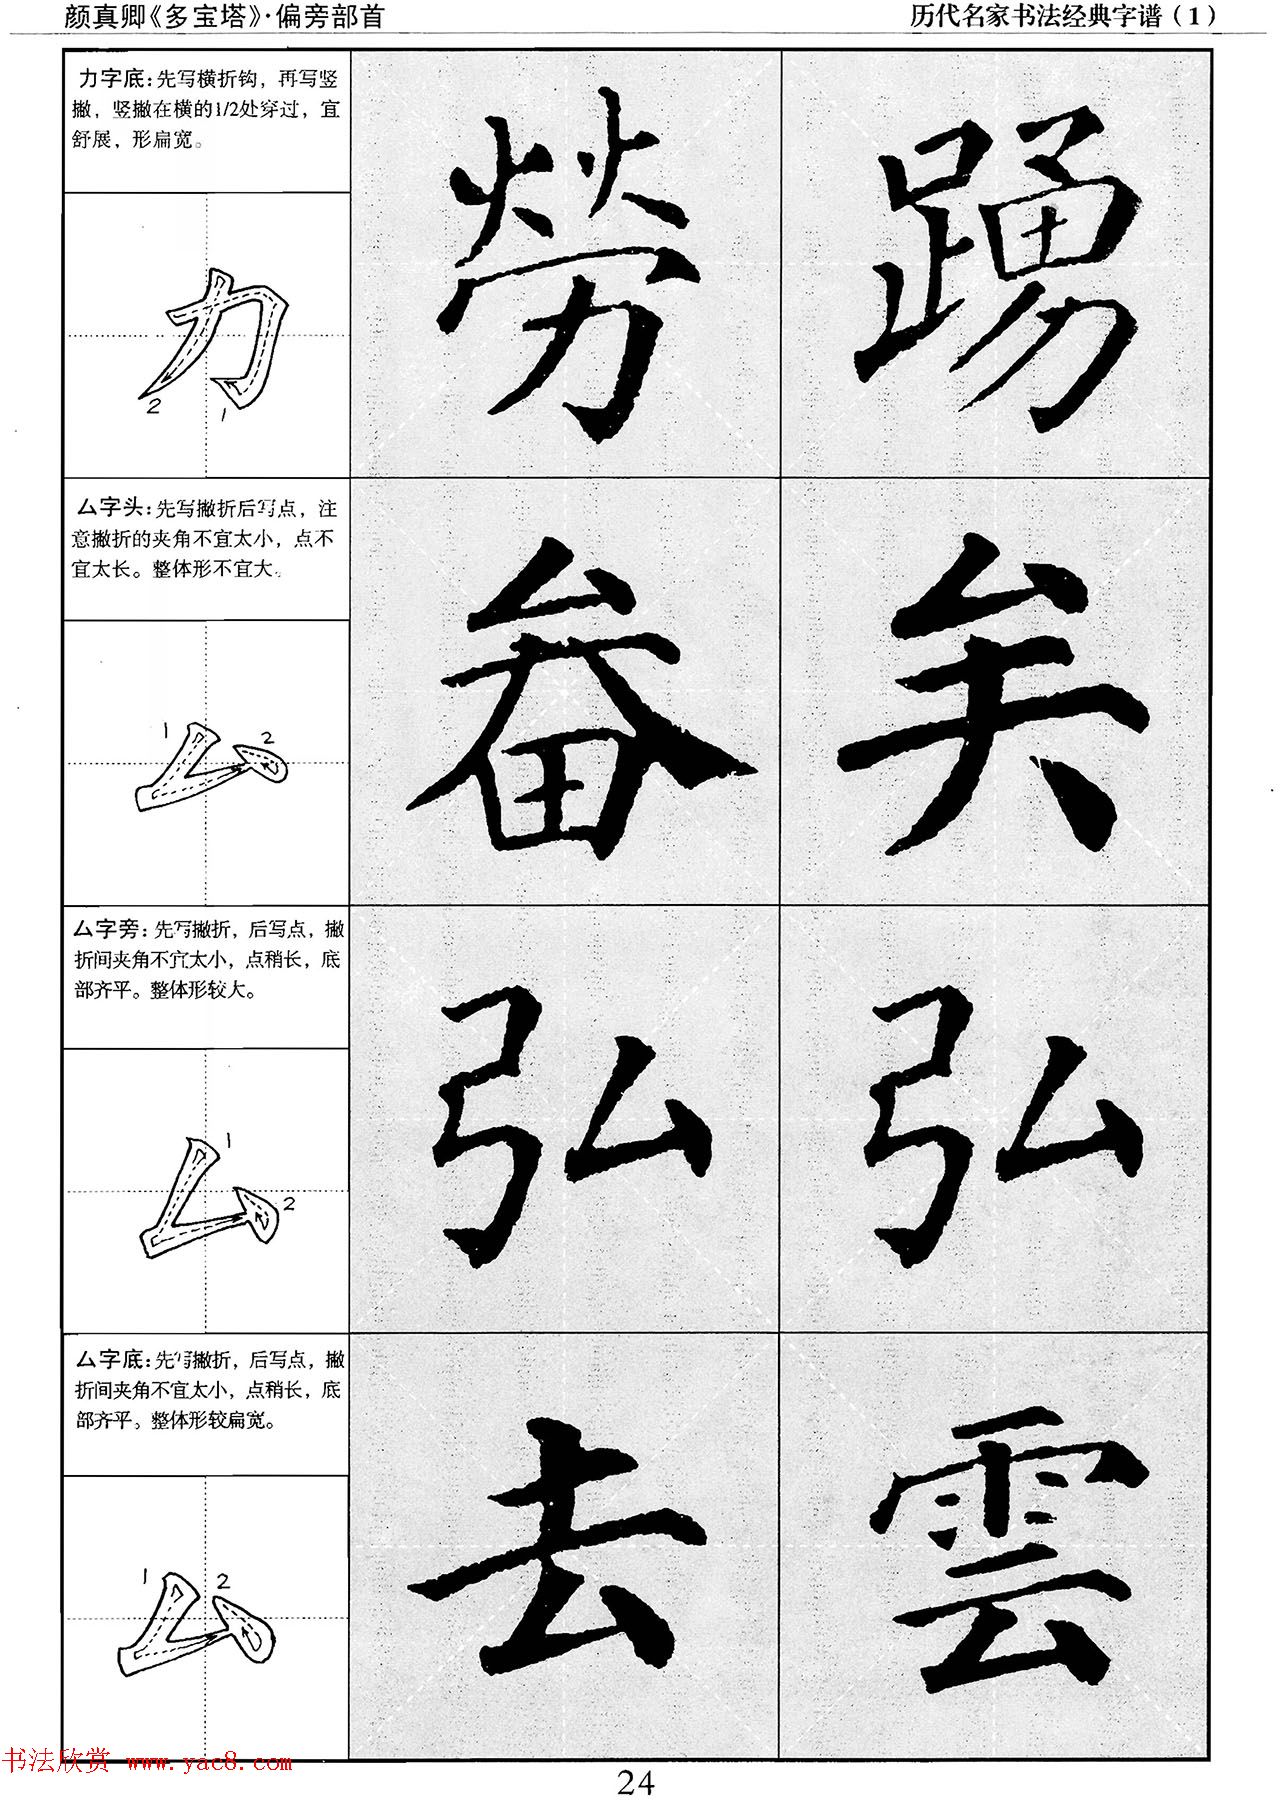 颜真卿《多宝塔》·偏旁部首
历代名家书法经典字谱（1）
力字底：先写横折钩，再写竖
撇，竖撇在横的1/2处穿过，宜
舒展，形扁宽。
2
1
勞
踴
厶字头：先写撇折后写点，注
意撇折的夹角不宜太小，点不
宜太长。整体形不宜大。
1
2
畚
矣
厶字旁：先写撇折，后写点，撇
折间夹角不宜太小，点稍长，底
部齐平。整体形较大。
1
2
弘
弘
厶字底：先写撇折，后写点，撇
折间夹角不宜太小，点稍长，底
部齐平。整体形较扁宽。
1
2
去
雲
书法欣赏 www.yac8.com
24